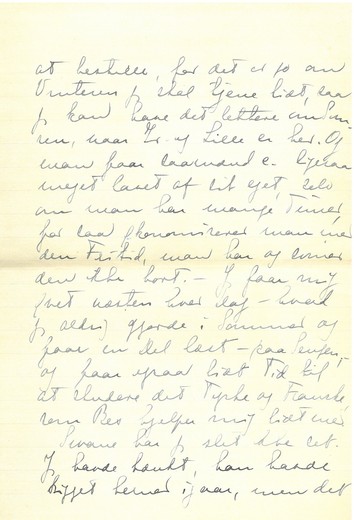 at bestille, for det er jo om
Vinteren jeg skal tjene lidt, saa
jeg kan have det lettere om Som
ren, naar Hr. og Lille er her. Og
man faar saamænd c. ligesaa
meget læst af sit eget, selv
om man har mange Timer,
for saa økonomiserer man med
den Fritid, man har og
den ikke bort. – Jeg faar mig
hvilet næsten hver Dag – hvad
jeg aldrig gjorde i Sommer og
faar en Del læst – paa Sengen –
og faar ogsaa lidt Tid til
at studere det Tyske og Franske,
som Bes hjelper mig lidt med
Svane har jeg slet ikke set.
Jeg havde tænkt, han havde
kigget herned igaar, men det